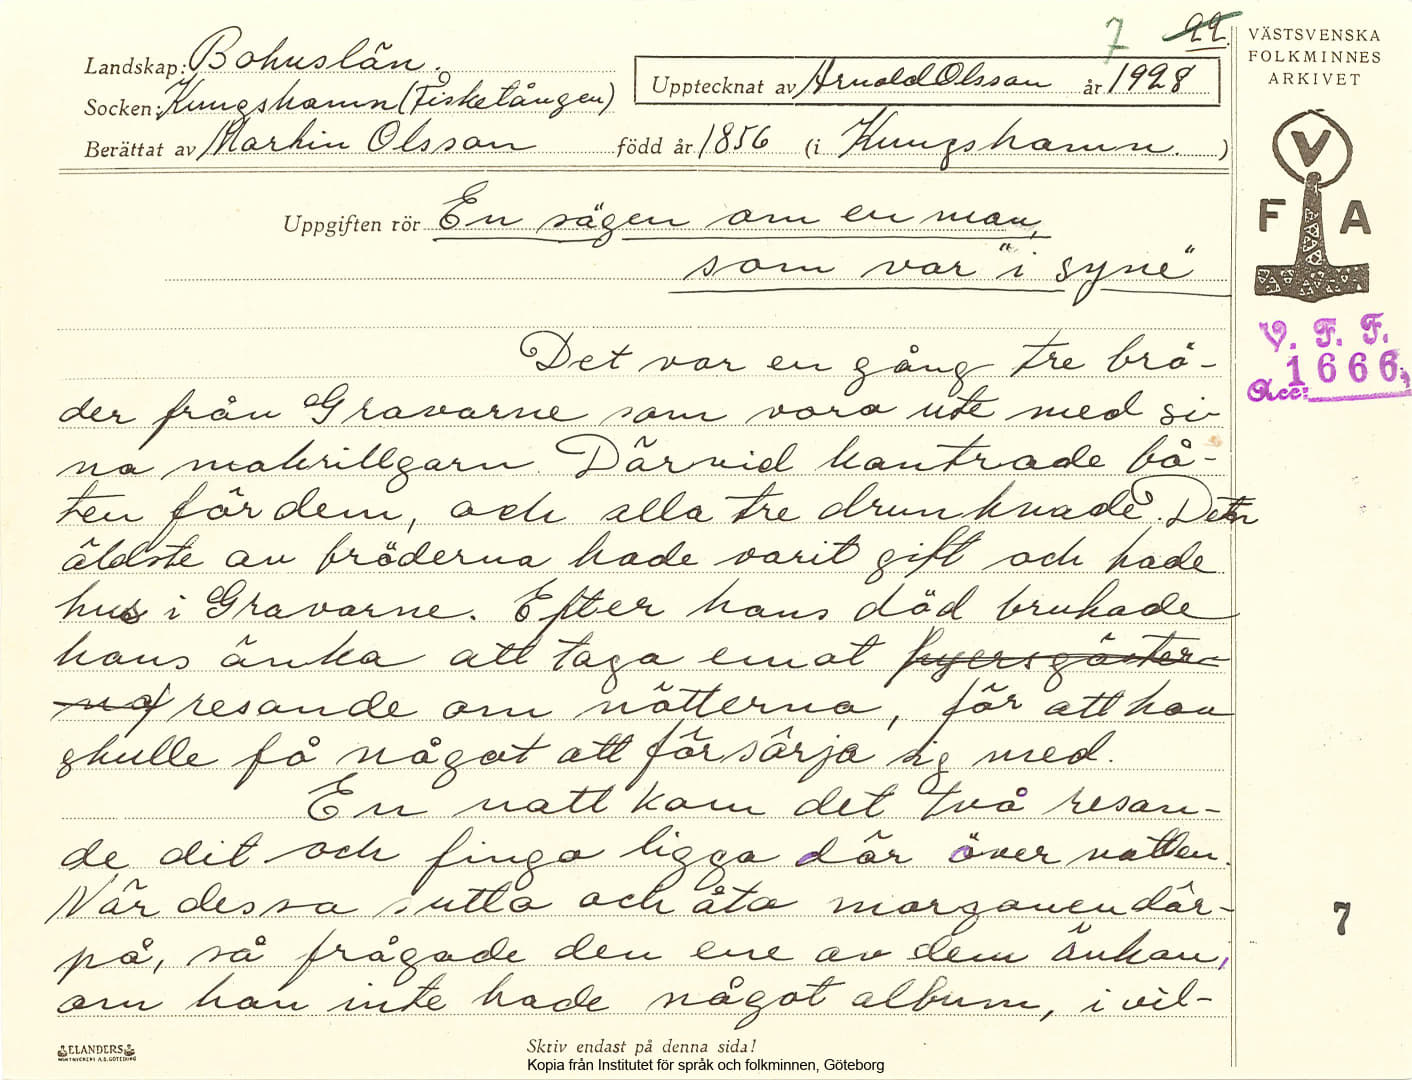 7 22.
Landskap: Bohuslän.
Socken: Kungshamn (Fisketången)
Berättat av Markin Olsson född år 1856 (i Kungshamn.)
Upptecknat av Arnold Olsson år 1928
VÄSTSVENSKA
FOLKMINNES
ARKIVET
V
F A
Uppgiften rör En sägen om en man,
som var "i syne"
V. F. F.
Acc: 1666,
Det var en gång tre brö-
der från Gravarne som voro ute med si-
na makrillgarn. Därvid kantrade bå-
ten för dem, och alla tre drunknade. Den
äldste av bröderna hade varit gift och hade
hus i Gravarne. Efter hans död brukade
hans änka att taga emot hyersgäster-
na resande om nätterna, för att hon
skulle få något att försörja sig med.
En natt kom det två resan-
de dit och fingo ligga där över natten.
När dessa sutto och åto morgonen där-
på, så frågade den ene av dem änkan,
om hon inte hade något album, i vil-
7
ELANDERS
BOKTRYCKERI A.B. GÖTEBORG
Skriv endast på denna sida!
Kopia från Institutet för språk och folkminnen, Göteborg